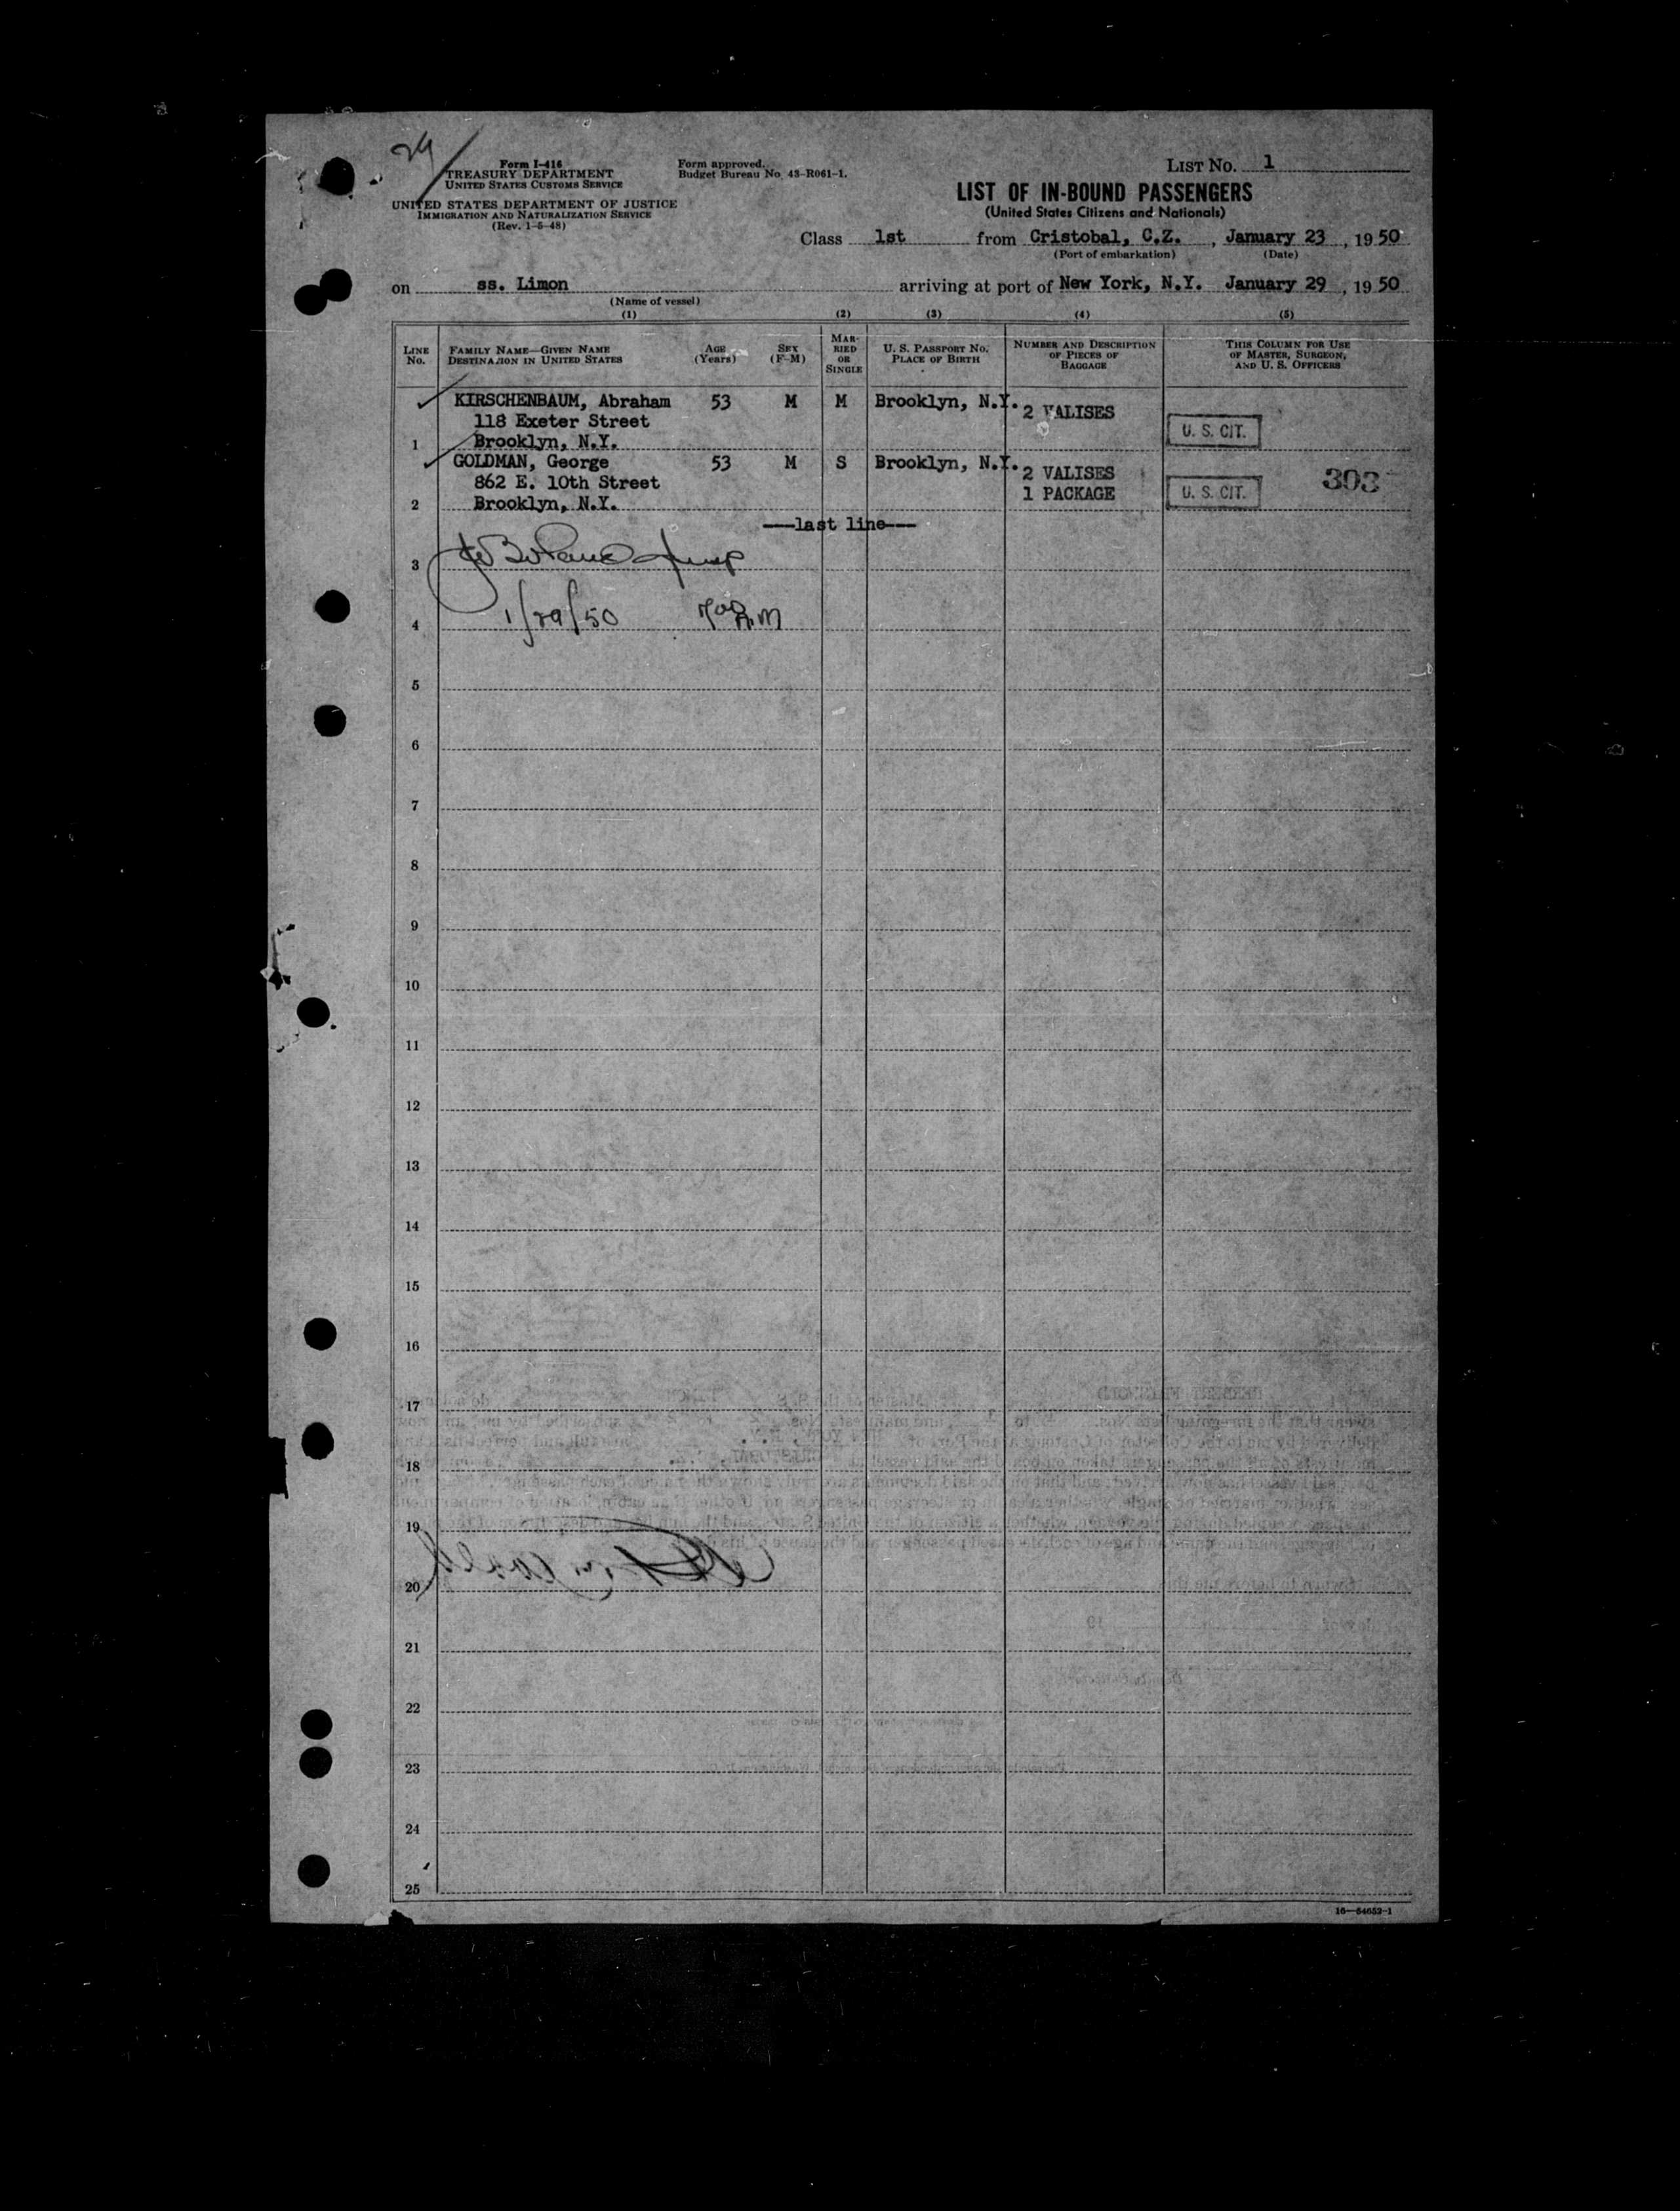 24
Form I-416
TREASURY DEPARTMENT
UNITED STATES CUSTOMS SERVICE
UNITED STATES DEPARTMENT OF JUSTICE
IMMIGRATION AND NATURALIZATION SERVICE
(Rev. 1-5-48)
Form approved.
Budget Bureau No. 43-R061-1.
LIST NO. 1
LIST OF IN-BOUND PASSENGERS
(United States Citizens and Nationals)
Class 1st from Cristobal, C.Z., January 23, 1950
(Port of embarkation) (Date)
on ss. Limon arriving at port of New York, N.Y. January 29, 1950
(Name of vessel)
(1) (2) (3) (4) (5)
LINE NO. FAMILY NAME—GIVEN NAME DESTINATION IN UNITED STATES AGE (Years) SEX (F-M) MARRIED OR SINGLE U. S. PASSPORT NO. PLACE OF BIRTH NUMBER AND DESCRIPTION OF PIECES OF BAGGAGE THIS COLUMN FOR USE OF MASTER, SURGEON, AND U. S. OFFICERS
KIRSCHENBAUM, Abraham 53 M M Brooklyn, N.Y. 2 VALISES
118 Exeter Street
1 Brooklyn, N.Y. U. S. CIT.
GOLDMAN, George 53 M S Brooklyn, N.Y. 2 VALISES
862 E. 10th Street 1 PACKAGE U. S. CIT. 303
2 Brooklyn, N.Y.
---last line---
3
4 1/29/50 A.M
5
6
7
8
9
10
11
12
13
14
15
16
17
18
19
20
21
22
23
24
25
16—54652-1